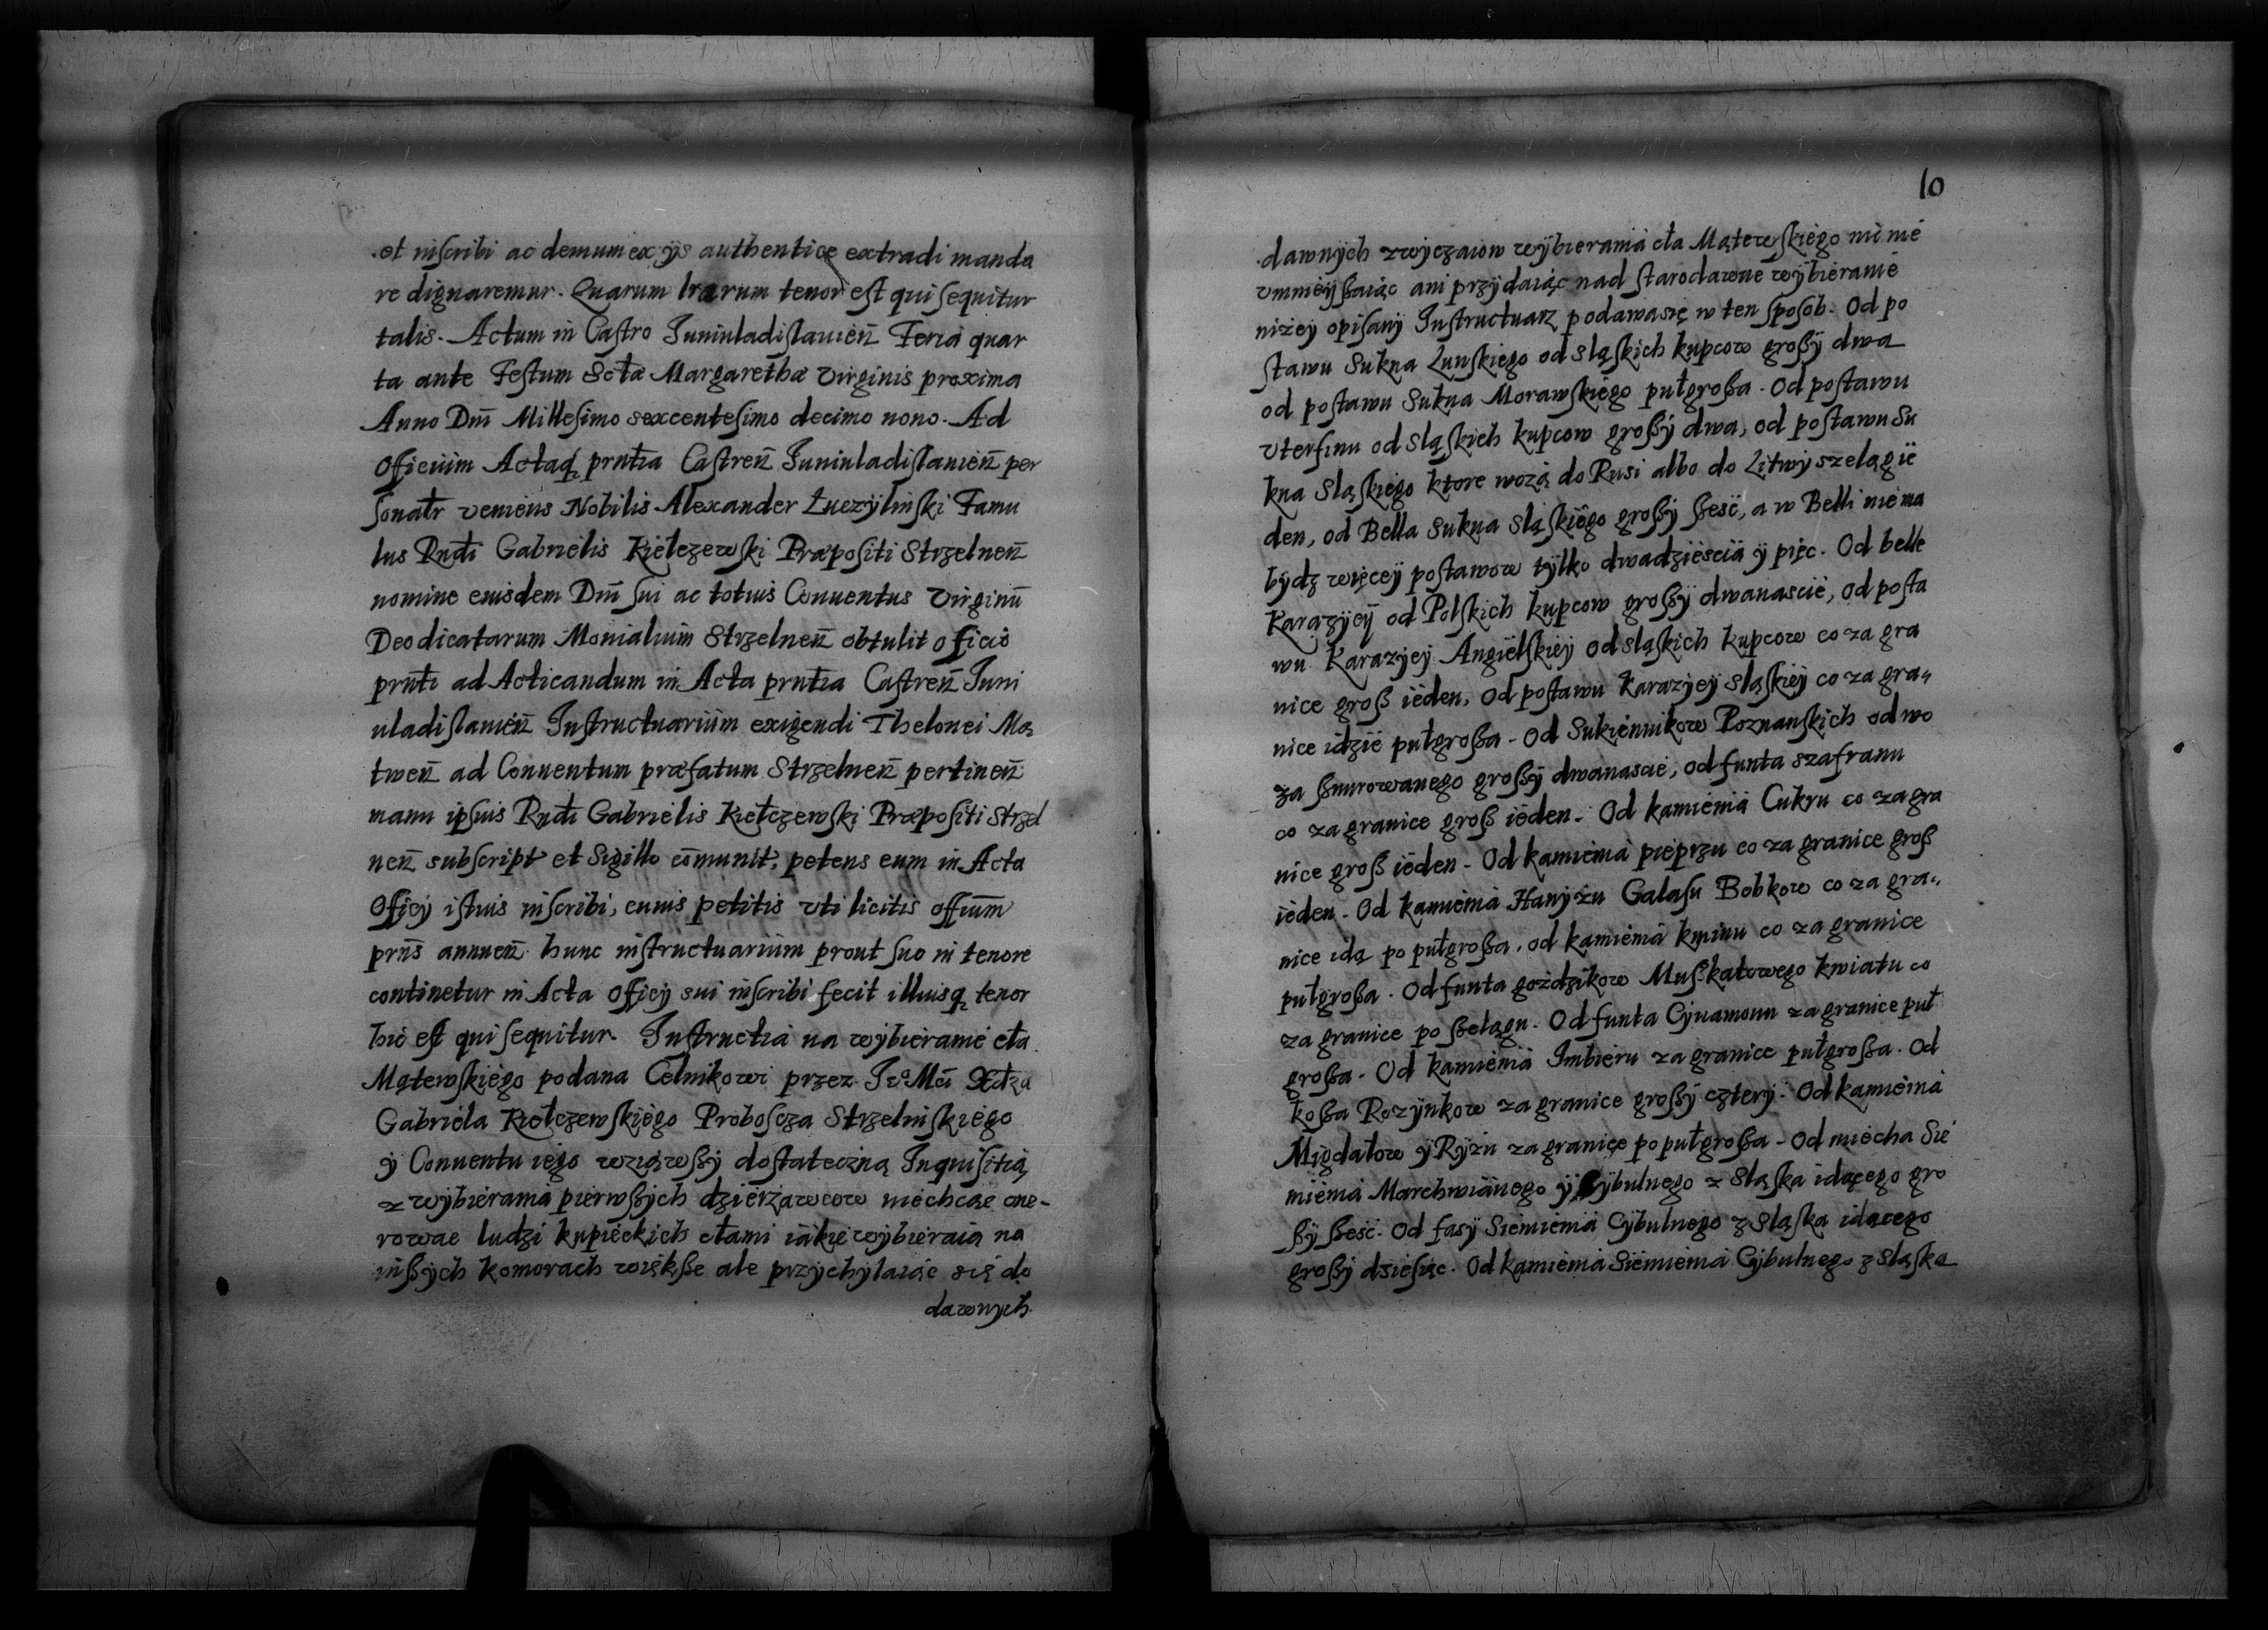 et inscribi ac demum ex ijs authentice extradi manda
re dignaremur. Quarum lrarum tenor est qui sequitur
talis. Actum in Castro Juniuladislauien̄ Feria quar
ta ante Festum Sctæ Margarethæ Virginis proxima
Anno Dm̄ Millesimo sexcentesimo decimo nono. Ad
Officium Actaq̨ prntia Castren̄ Juniuladislauien̄ per
sonalr veniens Nobilis Alexander Łuczÿlinski Famu
lus Rndi Gabrielis Kiełczewski Præpositi Strzelnen̄
nomine eiusdem Dm̄ sui ac totius Conuentus Virginū
Deo dicatarum Monialium Strzelnen̄ obtulit officio
prnti ad Acticandum in Acta prntia Castren̄ Juni
uladislauien̄ Instructuarium exigendi Thelonei Mą
twen̄ ad Conuentum præfatum Strzelnen̄ pertinen̄
manu ipsius Rndi Gabrielis Kiełczewski Præpositi Strzel
nen̄ subscript et Sigillo com̄unit, petens eum in Acta
Officÿ istius inscribi, cuius petitis vti licitis offium̄
prn̄s annuen̄ hunc instructuarium prout suo in tenore
continetur in Acta Officÿ sui inscribi fecit illiusq̨ tenor
hic est qui sequitur. Instructia na wÿbieranie cła
Mątewskiego podana Celnikowi przez Jo Mći Xdza
Gabriela Kiełczewskiego Proboscza Strzelinskiego
ÿ Conuentu iego wziąwßÿ dostateczną Inquisitią
z wÿbierania pierwßÿch dzierżawcow niechcąc one-
rowac ludzi kupieckich cłami iakie wÿbieraią na
inßÿch komorach więkße ale przÿchÿlaiąc się do
dawnÿch
10
dawnÿch zwÿczaiow wÿbierania cła Mątewskiego nic nie
vmnieÿßaiąc ani przÿdaiąc nad starodawne wÿbieranie
niżeÿ opisanÿ Instructuarz podawa się w ten sposob. Od po
stawu Sukna Lunskiego od Sląskich kupcow großÿ dwa
od postawu Sukna Morawskiego pułgroßa. Od postawu
Vterfinu od Sląskich kupcow großÿ dwa, od postawu Su
kna Sląskiego ktore wożą do Rusi albo do Litwÿ szeląg ie
den, od Bella Sukna Sląskiego großÿ ßesć, a w Belli nie ma
bÿdz więceÿ postawow tÿlko dwadziescia ÿ pięc. Od belle
Karazÿeÿ od Polskich kupcow großÿ dwanascie, od posta
wu Karazÿeÿ Angielskieÿ od sląskich kupcow co za gra
nice groß ieden, Od postawu Karazÿeÿ sląskieÿ co za gra„
nice idzie pułgroßa. Od Sukiennikow Poznanskich od wo
za ßnurowanego großÿ dwanascie, od funta szafranu
co za granice groß ieden. Od kamienia Cukru co za gra
nice groß ieden. Od kamienia pieprzu co za granice groß
ieden. Od kamienia Hanÿżu Galasu Bobkow co za gra„
nice idą po pułgroßa. od kamienia kminu co za granice
pułgroßa. Od funta gożdzikow Mußkatowego kwiatu co
za granice po ßelągu. Od funta Cÿnamonu za granice puł
großa. Od kamienia Imbieru za granice pułgroßa. Od
koßa Rozÿnkow za granice großÿ czterÿ. Od kamienia
Migdałow ÿ Rÿżu za granice po pułgroßa. Od miecha Sie
mienia Marchwianego ÿ Cÿbulnego z Sląska idącego gro
ßÿ ßesć. Od fasÿ Siemienia Cÿbulnego z Sląska idącego
großÿ dziesięc. Od kamienia Siemienia Cÿbulnego z Sląska